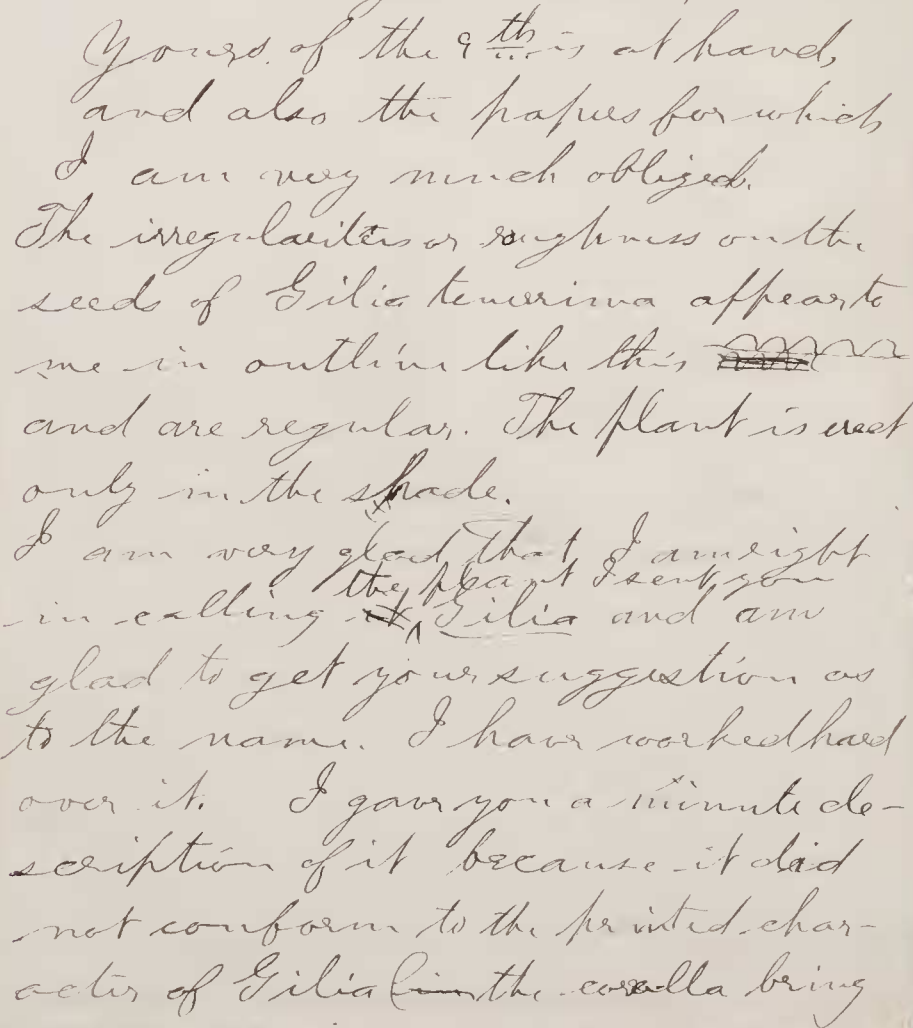 Yours of the 9th is at hand,
and also the papers for which
I am very much obliged.
The irregularities or roughness on the
seeds of Gilia tenerrima appear to
me in outline like this
and are regular. The plant is erect
only in the shade.
I am very glad that I am right
the plant I sent you
in calling it ^ Gilia and am
glad to get your suggestion as
to the name. I have worked hard
over it. I gave you a minute de-
scription of it because it did
not conform to the printed char-
acter of Gilia (in the corolla being